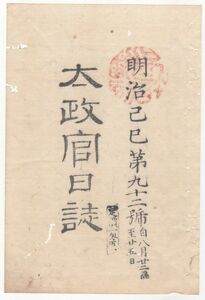 明治己巳第九十二號
自八月廿二日
至廿五日
太政官日誌